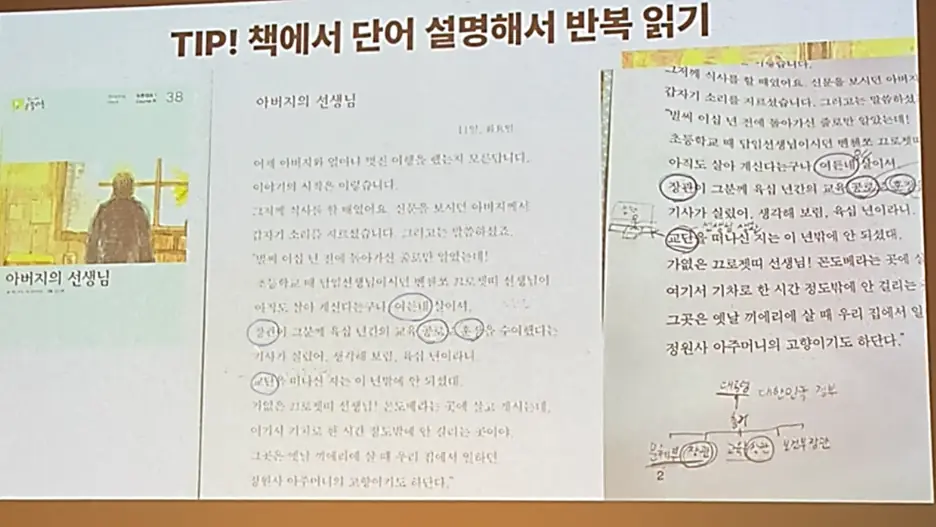 TIP! 책에서 단어 설명해서 반복 읽기
38
아버지의 선생님
아버지의 선생님
11일, 화요일
어제 아버지와 얼마나 멋진 여행을 했는지 모른답니다.
이야기의 시작은 이렇습니다.
그저께 식사를 할 때였어요. 신문을 보시던 아버지께서
갑자기 소리를 지르셨습니다. 그러고는 말씀하셨죠.
"벌써 이십 년 전에 돌아가신 줄로만 알았는데!
초등학교 때 담임선생님이시던 빈첸쪼 끄로젯띠 선생님이
아직도 살아 계신다는구나. 여든네 살이셔.
장관이 그분께 육십 년간의 교육 공로 훈장을 수여했다는
기사가 실렸어. 생각해 보렴, 육십 년이라니.
교단을 떠나신 지는 이 년밖에 안 되셨대.
가엾은 끄로젯띠 선생님! 꼰도베라는 곳에 살고 계시는데,
여기서 기차로 한 시간 정도밖에 안 걸리는 곳이야.
그곳은 옛날 끼에리에 살 때 우리 집에서 일하던
정원사 아주머니의 고향이기도 하단다."
그저께 식사를 할 때였어요. 신문을 보시던 아버지
갑자기 소리를 지르셨습니다. 그러고는 말씀하셨
"벌써 이십 년 전에 돌아가신 줄로만 알았는데!
초등학교 때 담임선생님이시던 빈첸쪼 끄로젯띠
아직도 살아 계신다는구나. 여든네 살이셔.
장관이 그분께 육십 년간의 교육 공로 훈장
기사가 실렸어. 생각해 보렴, 육십 년이라니.
교단을 떠나신 지는 이 년밖에 안 되셨대.
가엾은 끄로젯띠 선생님! 꼰도베라는 곳에 살
여기서 기차로 한 시간 정도밖에 안 걸리는
그곳은 옛날 끼에리에 살 때 우리 집에서 일
정원사 아주머니의 고향이기도 하단다."
대통령 대한민국 정부
장관 교육 장관 보건부 장관
2